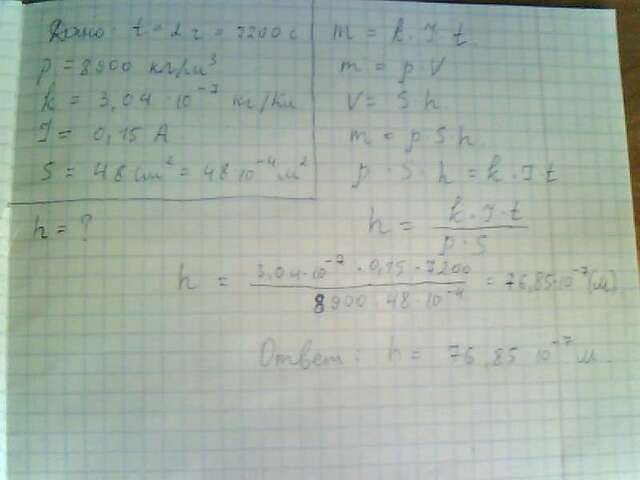 Дано: t = 2 ч = 7200 с
ρ = 8900 кг/м³
k = 3,04 · 10⁻⁷ кг/Кл
I = 0,15 А
S = 48 cm² = 48 10⁻⁴ м²
h = ?
m = k · I t
m = ρ · V
V = S h
m = ρ S h
ρ · S · h = k · I t
h = k · I · t / ρ · S
h = 3,04 · 10⁻⁷ · 0,15 · 7200 / 8900 · 48 · 10⁻⁴ = 76,85 · 10⁻⁷ (м)
Ответ: h = 76,85 10⁻⁷ м.